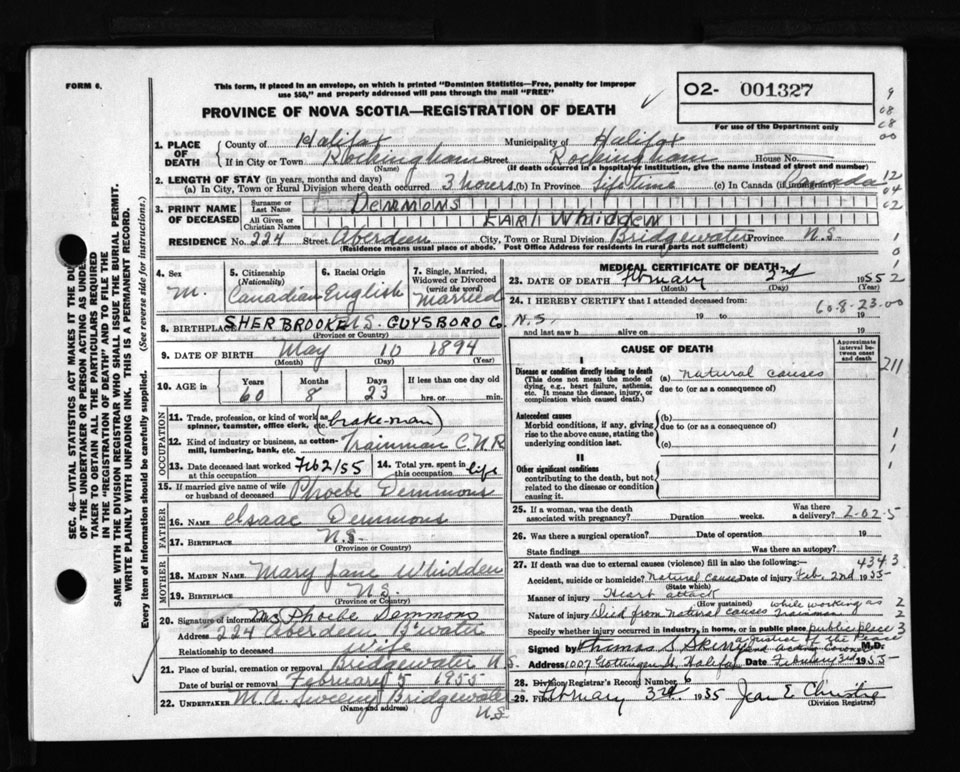 FORM 6.
This form, if placed in an envelope, on which is printed "Dominion Statistics—Free, penalty for improper
use $50," and properly addressed will pass through the mail "FREE"
02- 001327
For use of the Department only
PROVINCE OF NOVA SCOTIA—REGISTRATION OF DEATH
9
08
08
00
1. PLACE OF DEATH
County of Halifax Municipality of Halifax
If in City or Town Rockingham Street Rockingham House No.
(Name) (If death occurred in a hospital or institution, give the name instead of street and number)
2. LENGTH OF STAY (in years, months and days)
(a) In City, Town or Rural Division where death occurred 3 hours (b) In Province Lifetime (c) In Canada (if immigrant) Canada
12
04
02
3. PRINT NAME OF DECEASED
Surname or Last Name Demmons
All Given or Christian Names Earl Whidden
RESIDENCE No. 224 Street Aberdeen City, Town or Rural Division Bridgewater Province N.S.
(Residence means usual place of abode. Post Office Address for residents in rural parts not sufficient)
1
0
1
4. Sex M.
5. Citizenship (Nationality) Canadian
6. Racial Origin English
7. Single, Married, Widowed or Divorced (write the word) Married
8. BIRTHPLACE SHERBROOKE N.S. GUYSBORO Co.
(Province or Country)
9. DATE OF BIRTH May 10 1894
(Month) (Day) (Year)
10. AGE in Years 60 Months 8 Days 23 If less than one day old hrs. or min.
OCCUPATION
11. Trade, profession, or kind of work as spinner, teamster, office clerk, etc. (brake-man)
12. Kind of industry or business, as cotton-mill, lumbering, bank, etc. Trainman C.N.R
13. Date deceased last worked at this occupation Feb 2/55
14. Total yrs. spent in this occupation life
15. If married give name of wife or husband of deceased Phoebe Demmons
FATHER
16. NAME Isaac Demmons
17. BIRTHPLACE N.S.
(Province or Country)
MOTHER
18. MAIDEN NAME Mary Jane Whidden
19. BIRTHPLACE N.S.
(Province or Country)
20. Signature of informant Mrs Phoebe Demmons
Address 224 Aberdeen B'water
Relationship to deceased wife
21. Place of burial, cremation or removal Bridgewater N.S.
Date of burial or removal February 5 1955
22. UNDERTAKER M.A. Sweeny Bridgewater
(Name and address) N.S.
MEDICAL CERTIFICATE OF DEATH
23. DATE OF DEATH February 2nd 1955 2
(Month) (Day)
24. I HEREBY CERTIFY that I attended deceased from: 60-8-23-00
N.S. 19 to 19
and last saw h alive on 19
I
CAUSE OF DEATH
Approximate interval between onset and death
Disease or condition directly leading to death (a) natural causes 211
(This does not mean the mode of dying, e.g., heart failure, asthenia, etc. It means the disease, injury, or complication which caused death.)
due to (or as a consequence of)
Antecedent causes (b)
Morbid conditions, if any, giving rise to the above cause, stating the underlying condition last.
due to (or as a consequence of)
(c)
II
Other significant conditions
contributing to the death, but not related to the disease or condition causing it.
1
1
1
25. If a woman, was the death associated with pregnancy? Duration weeks. Was there a delivery? 2-02-5
26. Was there a surgical operation? Date of operation 19
State findings Was there an autopsy?
27. If death was due to external causes (violence) fill in also the following:- 4343
Accident, suicide or homicide? Natural causes Date of injury Feb. 2nd 1955
(State which)
Manner of injury Heart attack
(How sustained) while working as
Nature of injury Died from natural causes Trainman
2
2
Specify whether injury occurred in industry, in home, or in public place public place 3
a Justice of the Peace
and Acting Coroner
Signed by Thomas S. M.D.
Address 1007 Gottingen St, Halifax Date February 3rd 1955
28. Division Registrar's Record Number 6
29. Filed February 3rd 1955 Jean E. Christie
(Division Registrar)
SEC. 46—VITAL STATISTICS ACT MAKES IT THE DUTY
OF THE UNDERTAKER OR PERSON ACTING AS UNDERTAKER
TO OBTAIN ALL THE PARTICULARS REQUIRED
IN THE "REGISTRATION OF DEATH" AND TO FILE THE
SAME WITH THE DIVISION REGISTRAR WHO SHALL ISSUE THE BURIAL PERMIT.
WRITE PLAINLY WITH UNFADING INK. THIS IS A PERMANENT RECORD.
Every item of information should be carefully supplied. (See reverse side for instructions.)